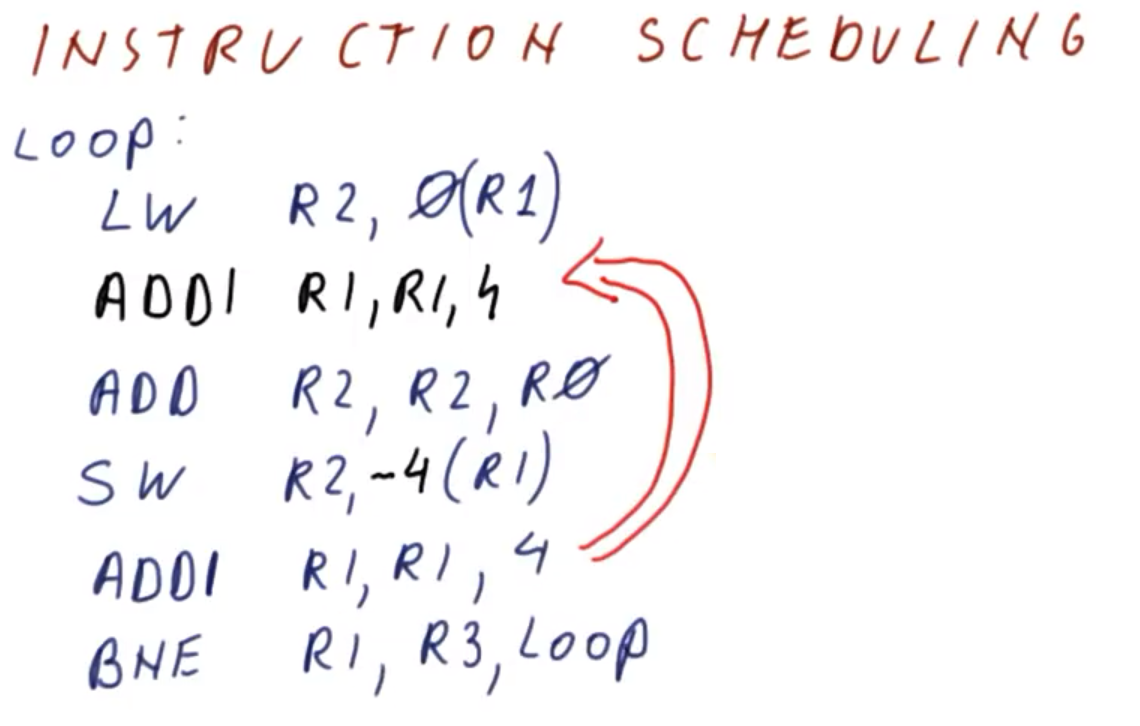 INSTRUCTION SCHEDULING
LOOP:
LW R2, 0(R1)
ADDI R1, R1, 4
ADD R2, R2, R0
SW R2, -4(R1)
ADDI R1, R1, 4
BNE R1, R3, LOOP